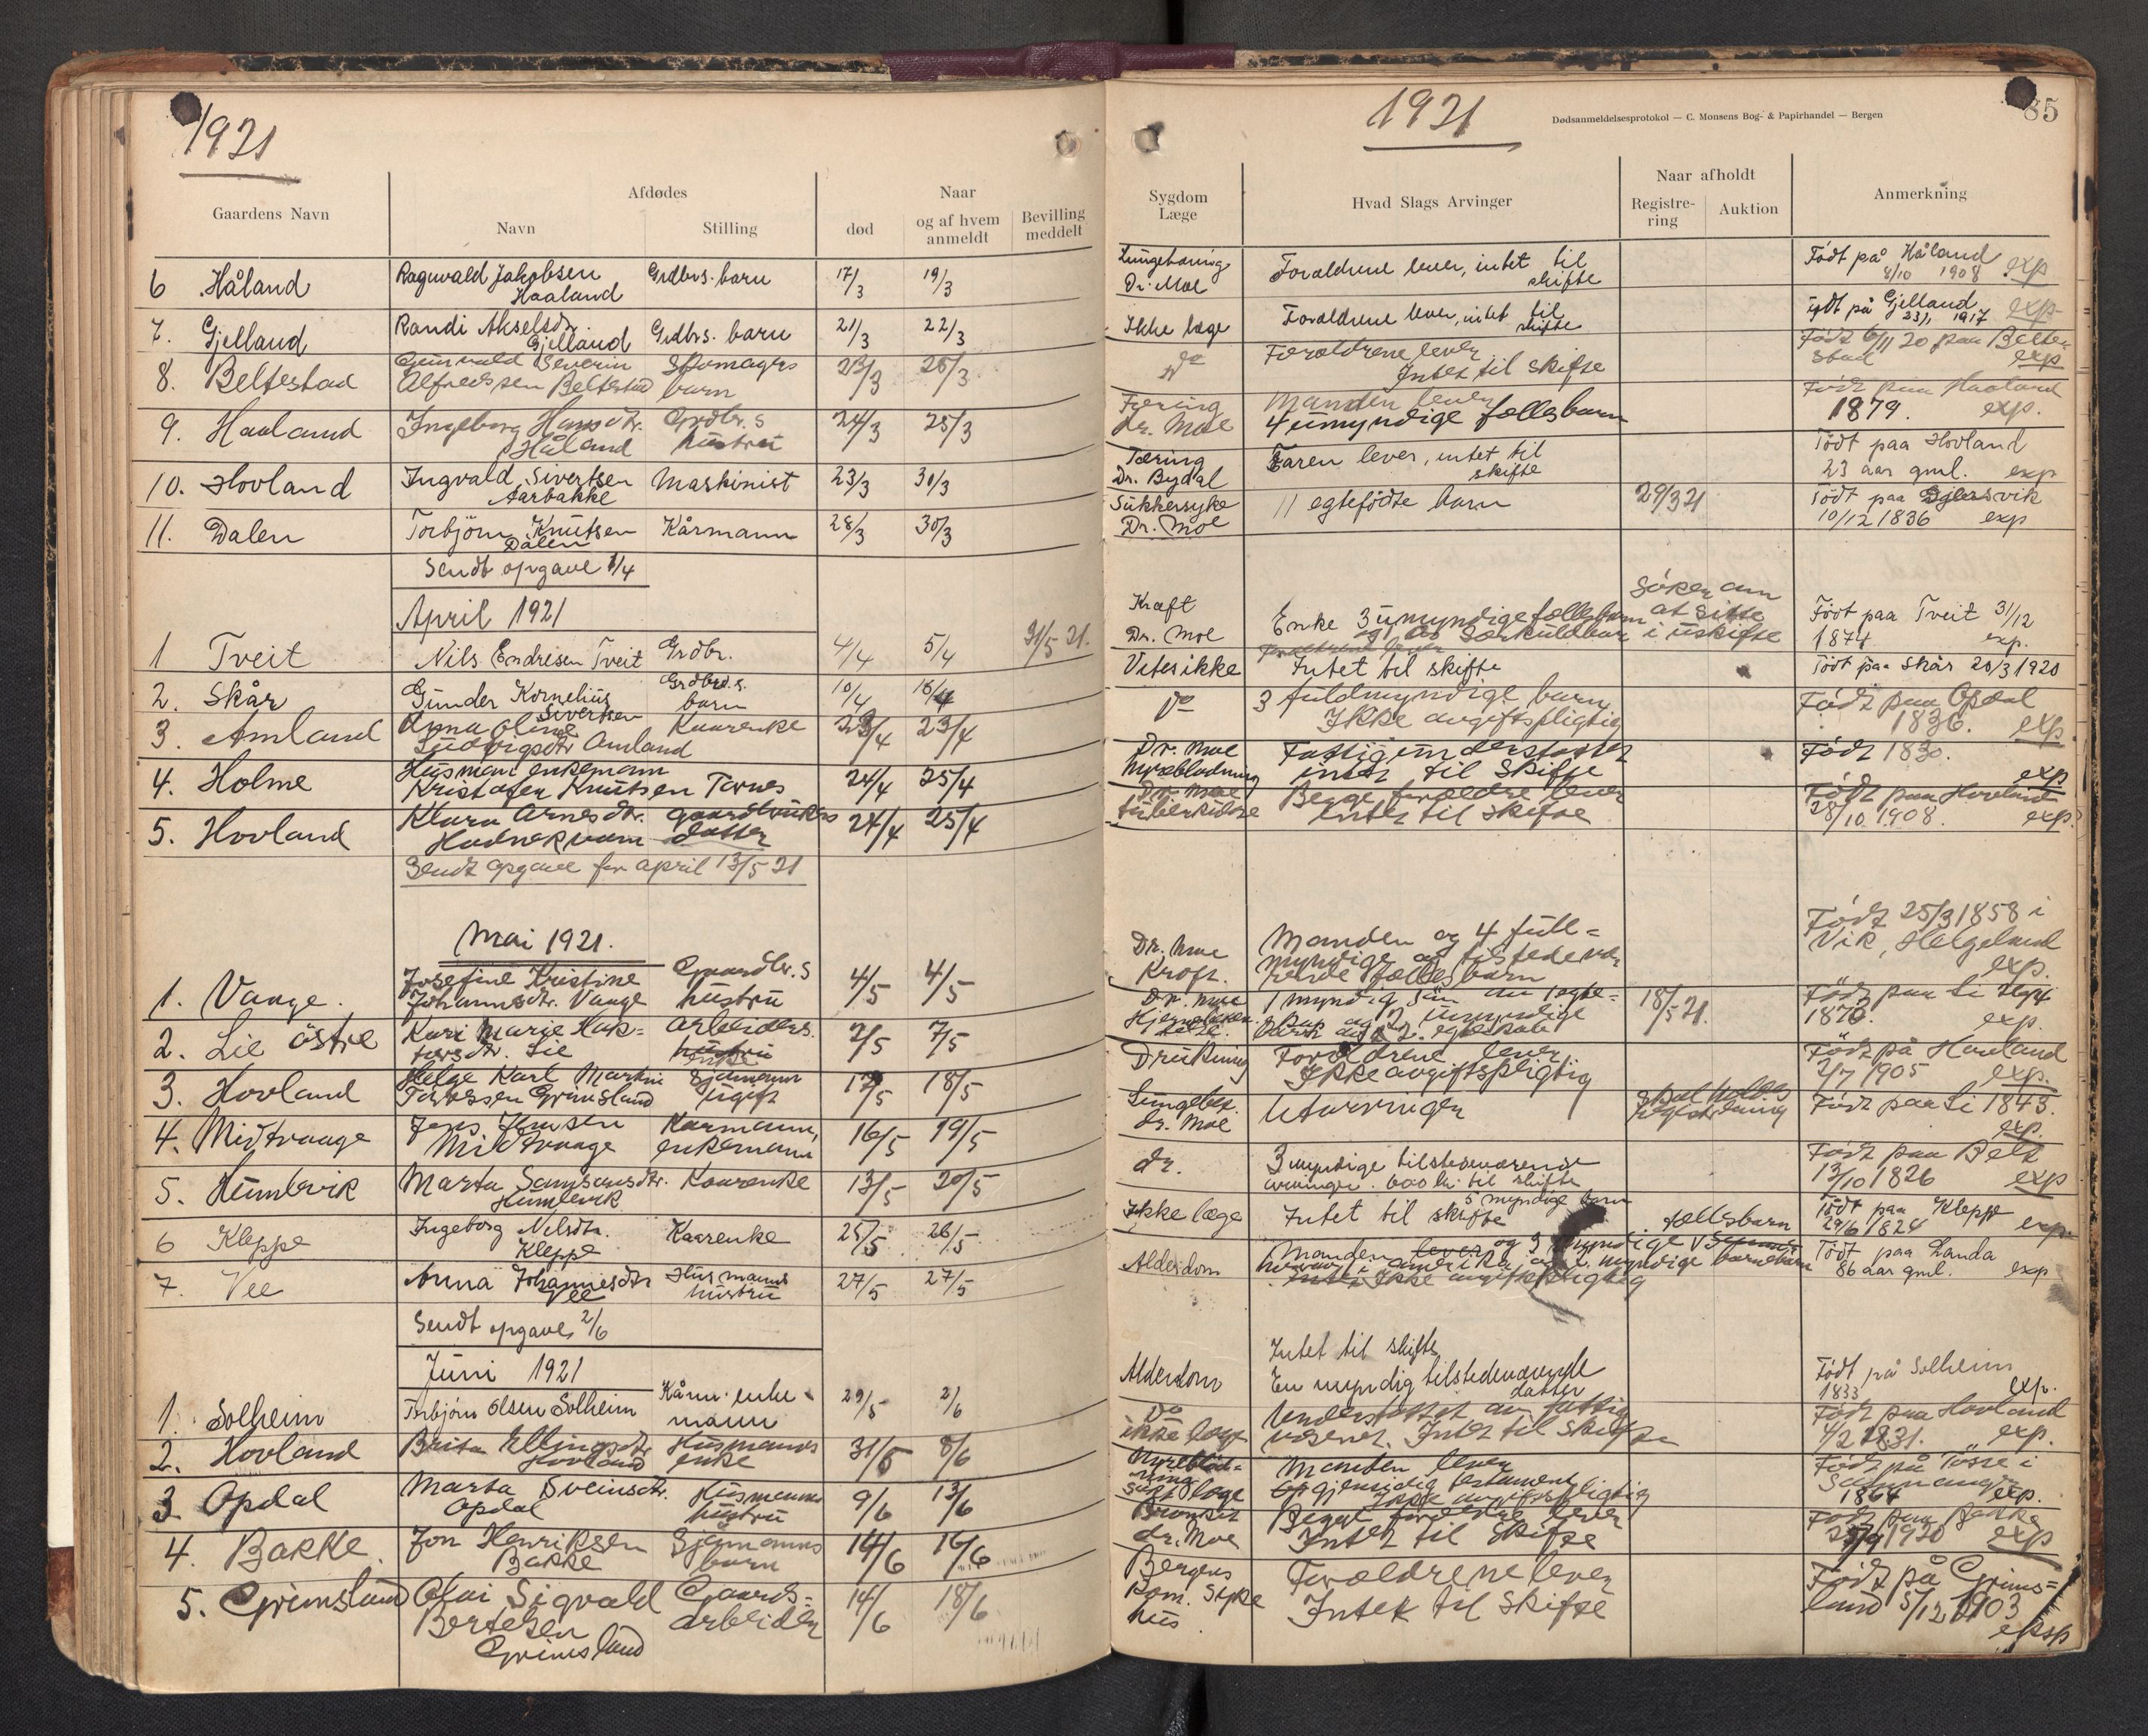 1921
Gaardens Navn
Afdødes
Navn
Stilling
Naar
død
og af hvem anmeldt
Bevilling meddelt
6 Håland Ragnvald Jakobsen Grdbrs. barn 17/3 19/3
Haaland
7. Gjelland Randi Akselsdr. Grdbrs. barn 21/3 22/3
Gjelland
8. Beltestad Gunvald Severin Skomagers 23/3 26/3
Alfredssen Beltestad barn
9. Haaland Ingeborg Hansdr. Grdbr.s 24/3 25/3
Håland hustru
10. Hovland Ingvald Sivertsen Maskinist 23/3 30/3
Aarbakke
11. Dalen Torbjörn Knutsen Kårmann 28/3 30/3
Dalen
Sendt opgave 1/4
April 1921
1 Tveit Nils Endresen Tveit Grdbr. 4/4 5/4 31/5 21.
2. Skår Gunder Kornelius Grdbrd.s. 10/4 16/4
Sivertsen barn
3. Amland Anna Oline Kaarenke 23/4 23/4
Ludvigsdr Amland
4. Holme Husmann enkemann 24/4 25/4
Kristofer Knutsen Tornes
5. Hovland Klara Arnesdr. gaardbrukers 24/4 25/4
Hodnekvam datter
Sendt opgave for april 13/5 21
Mai 1921.
1. Vange. Josefine Kristine Gaardbr.s 4/5 4/5
Johannesdr. Vange hustru
2. Lie östre Kari Marie Hak- arbeiders. 7/5 7/5
Lie hustru
3. Hovland Helge Karl Martin Sjömann 17/5 18/5
Grimsland ugift
4. Midtvaage Jens Jensen Karmann, 16/5 19/5
Midtvaage enkemann
5. Humlevik Marta Samsonsdtr. Kaarenke 13/5 20/5
Humlevik
6 Kleppe Ingeborg Nilsdtr. Kaarenke 25/5 26/5
Kleppe
7. Vee Anna Johannesdtr Husmanns 27/5 27/5
Vee hustru
Sendt opgave 2/6
Juni 1921
1. Solheim Torbjörn Olsen Solheim Kårm. enke- 29/5 2/6
mann
2. Hovland Brita Ellingsdtr Husmanns 31/5 8/6
Hovland enke
3 Opdal Marta Sveinsdtr. Husmanns 9/6 13/6
Opdal hustru
4. Bakke Jon Henriksen Sjömanns 14/6 16/6
Bakke barn
5. Grimsland Olai Sigvald Gaards- 14/6 18/6
Bertelsen arbeider
Grimsland
1921
Dødsanmeldelsesprotokol — C. Monsens Bog- & Papirhandel — Bergen
85
Sygdom
Læge
Hvad Slags Arvinger
Naar afholdt
Registre-
ring
Auktion
Anmerkning
Forældrene lever, intet til Födt på Håland
Dr. Moe skifte 8/10 1908 exp
Ikke læge Forældrene lever, intet til Födt på Gjelland exp
skifte 23/1 1917
do Forældrene lever Födt 6/11 20 paa Belte-
Intet til skifte stad exp
Tæring Manden lever Födt paa Haaland
Dr. Moe 4 umyndige fællesbarn 1879. exp.
Tæring Faren lever, intet til Födt paa Hovland
Dr. Bydal skifte 23 aar gml. exp
Sukkersyke 11 egtefödte barn 29/3 21 Födt paa Gjersvik
Dr. Moe 10/12 1836 exp
Kræft Söker om
Dr. Moe Enke 3 umyndige fællesbarn at sitte Födt paa Tveit 31/12
særkuldbarn i uskifte 1874 exp.
Vites ikke Intet til skifte Födt paa Skår 20/3 1920
do 3 fuldmyndige barn Födt paa Opdal
Ikke avgiftspligtig 1836. exp.
Dr. Moe Fattigunderstöttet Födt 1830.
Nyreblödning intet til Skifte exp
Dr. Moe Begge forældre lever Födt paa Hovland
tuberkulose Intet til Skifte 28/10 1908. exp.
Födt 25/3 1858 i
Dr. Moe Manden og 4 full- Vik, Helgeland
Kræft. myndige og tilstedevæ- exp.
rende fællesbarn
Dr. Moe 1 myndig sön 18/5 21. Födt paa Li
exp.
Drukning Forældrene lever Födt på Hovland
Ikke avgiftspligtig 2/7 1905 exp.
Lungebet. Utarvinger Skal holdes Födt paa Li 1843.
Dr. Moe registrering exp.
do. 3 myndige tilstedeværende Födt paa Belt
arvinger. 600 kr. til skifte 13/10 1826 exp
Ikke læge Intet til skifte 5 myndige barn Födt paa Kleppe
29/6 1824 exp.
Alderdom Manden lever og 3 myndige fællesbarn Födt paa Landa
Ikke avgiftspligtig 86 aar gml. exp
Intet til skifte
Alderdom En myndig tilstedeværende Födt på Solheim
datter 1833 exp.
do Understöttet av fattig- Födt paa Hovland
ikke læge væsenet. Intet til Skifte 4/2 1831. exp.
Nyreblöd- Manden lever Födt på Tösse i
ning gjensidig testament Samnanger
læge Ikke avgiftspligtig 1864 exp.
Bronkit Begge forældre lever Födt paa Bakke
Dr. Moe Intet til Skifte 1920 exp
Bergens Forældrene lever Födt på Grims-
kom. Syke Intet til Skifte land 5/12 1903
hus eksp